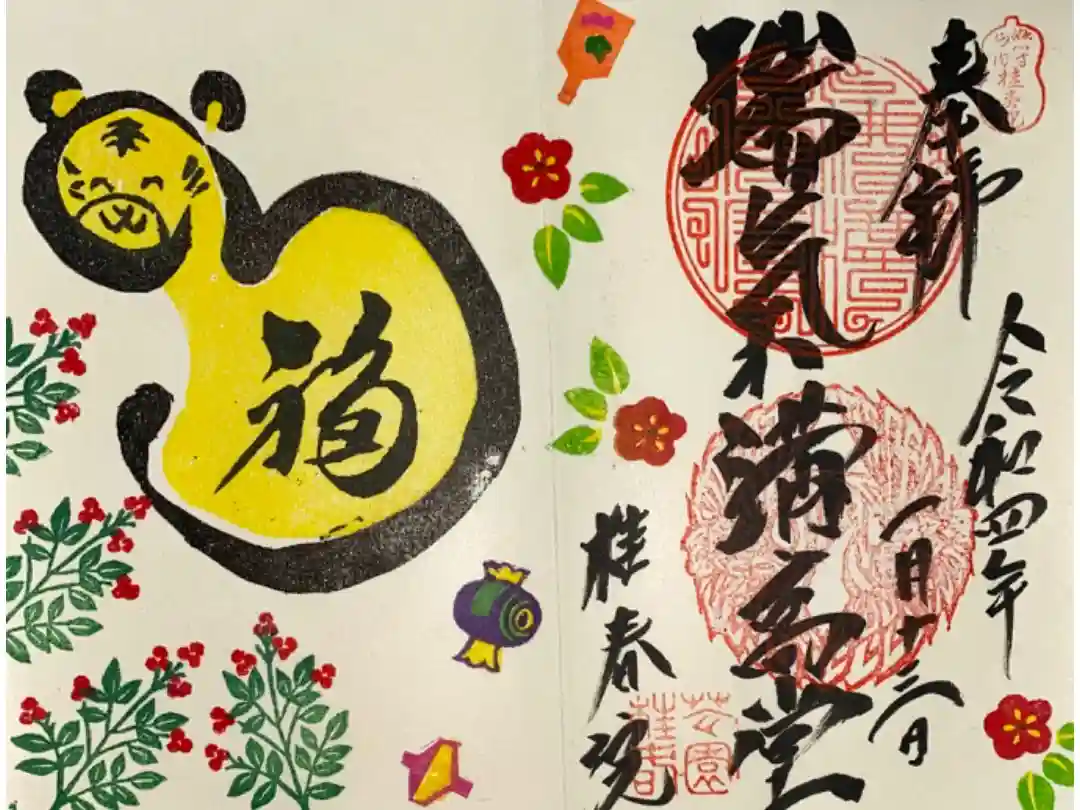 奉拝
令和四年
一月十三日
瑞氣満高堂
桂春院
福